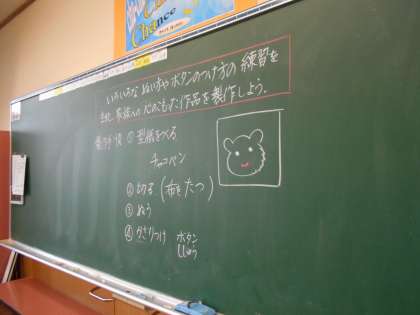 Chance
いろいろな ぬい方や ボタンのつけ方の 練習を
生かし 家族への 心のこもった 作品を 製作しよう。
① 型紙をつくる
チャコペン
② 切る (布をたつ)
③ ぬう
④ かざりつけ ボタン
ししゅう